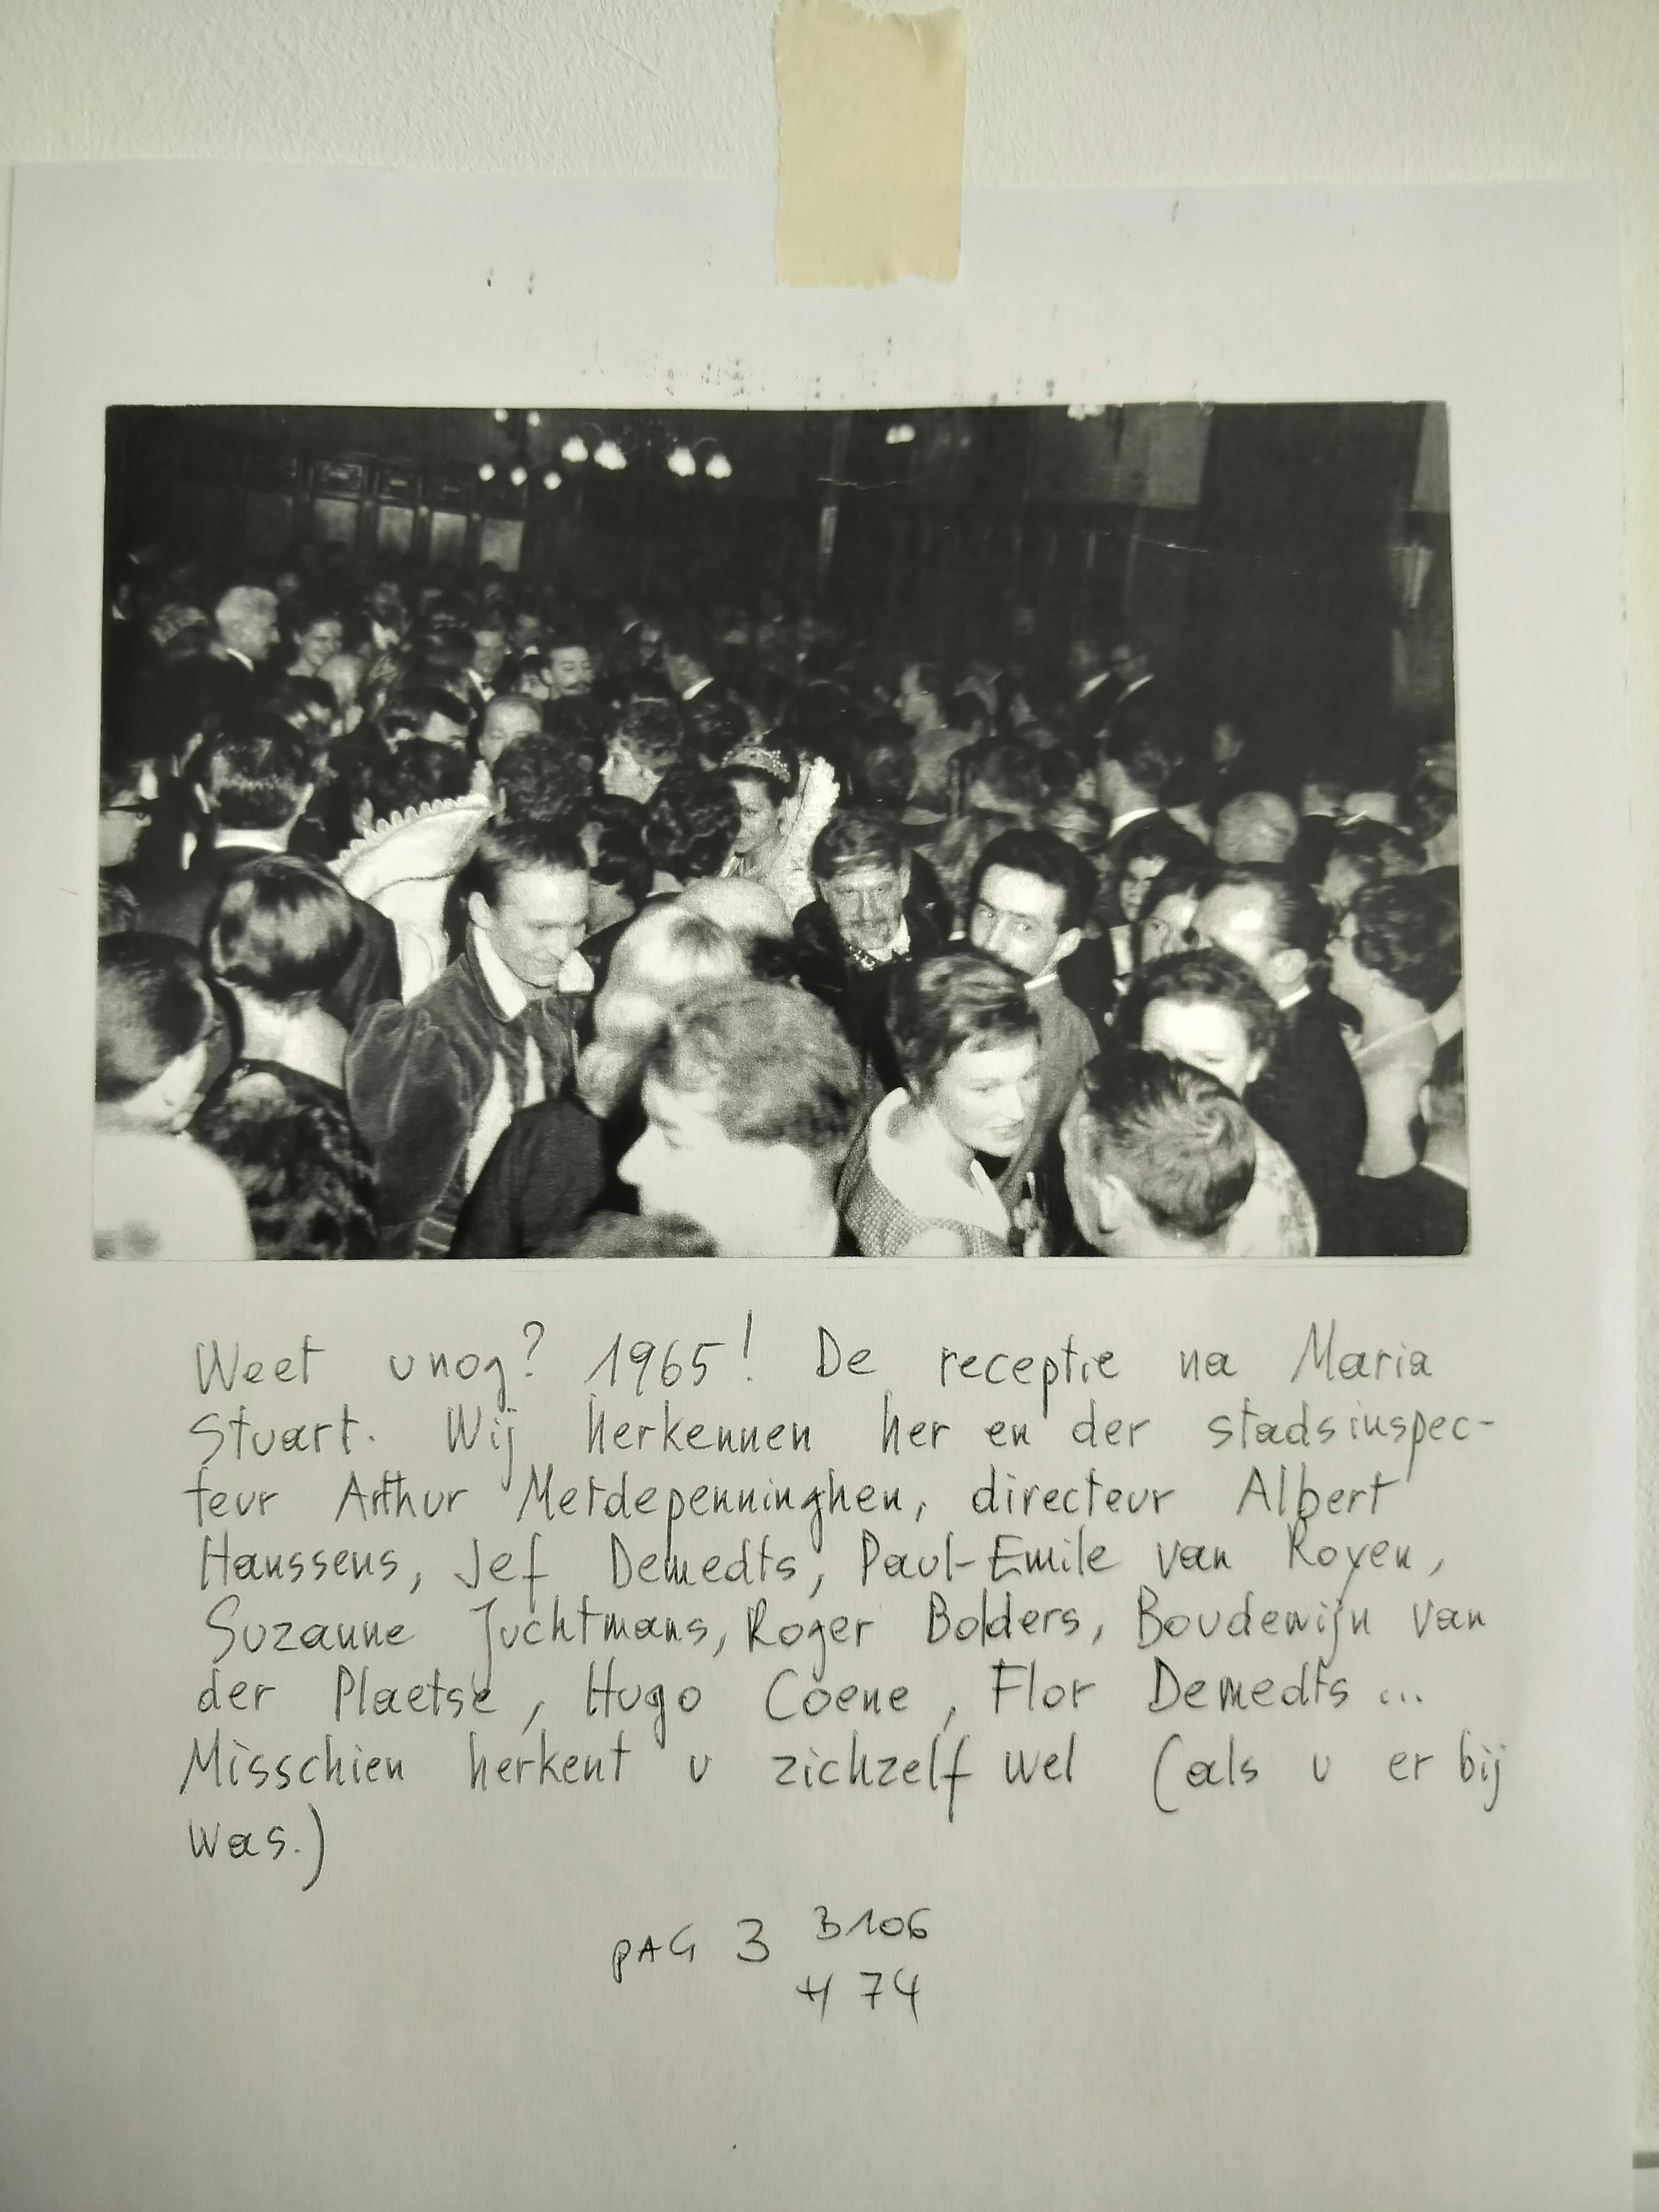 Weet u nog? 1965! De receptie na Maria
Stuart. Wij herkennen her en der stadsinspec-
teur Arthur Metdepenninghen, directeur Albert
Hanssens, Jef Demedts, Paul-Emile van Royen,
Suzanne Juchtmans, Roger Bolders, Boudewijn van
der Plaetse, Hugo Coene, Flor Demedts ...
Misschien herkent u zichzelf wel (als u er bij
was.)
PAG 3 B106
H 74